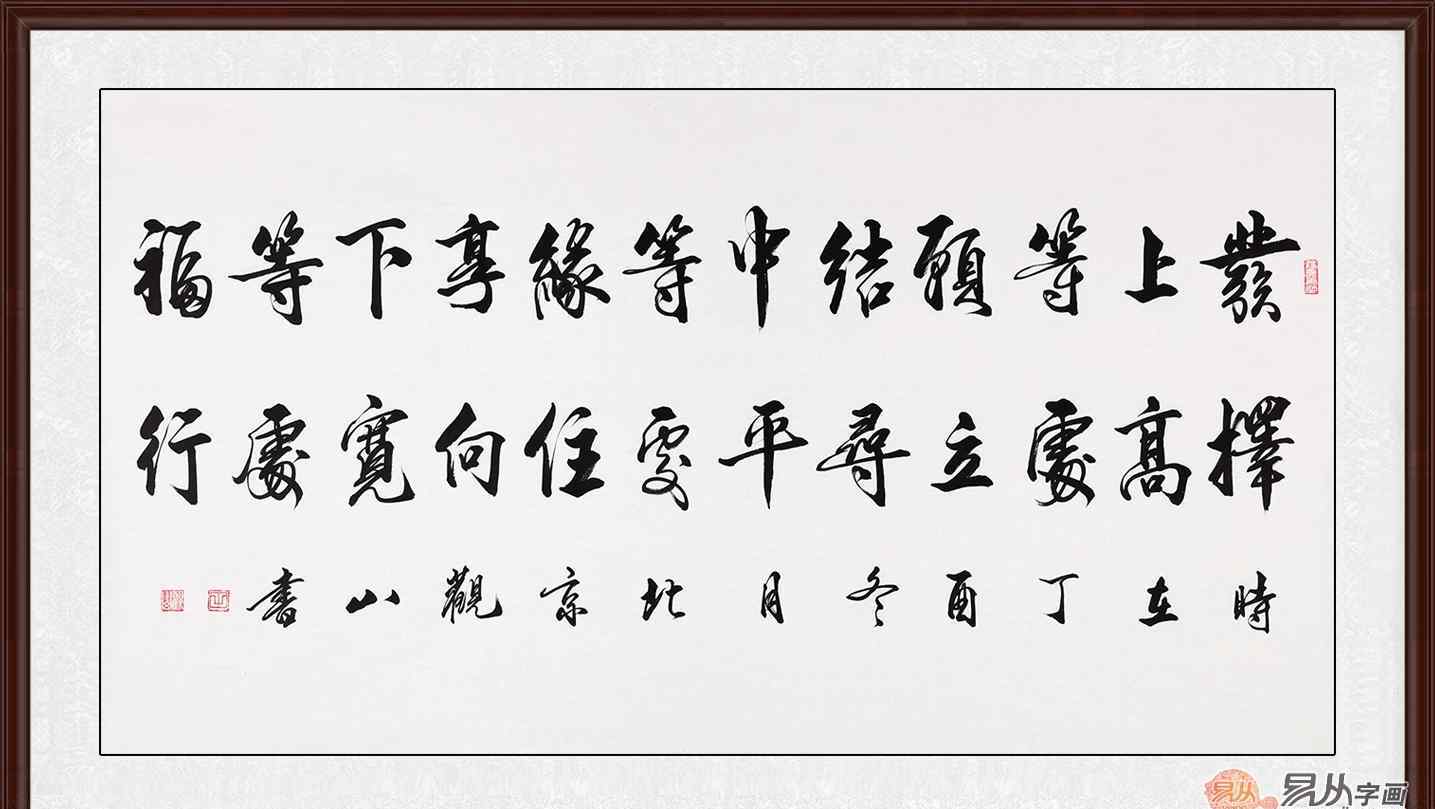 發上等願結中等緣享下等福
擇高處立尋平處住向寬處行
時在丁酉冬月北京觀山書
易从
易从字画